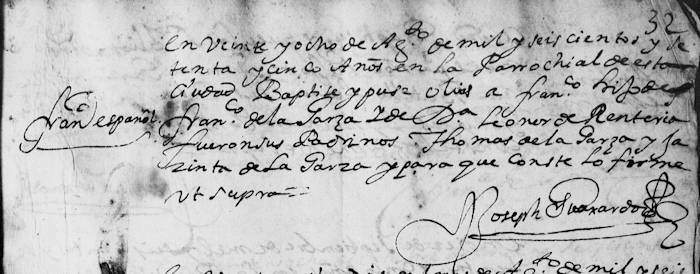 32
En Veinte y ocho de Ag.to de mil y seis cientos y se
tenta y cinco Años en la Parrochial de esta
Ciudad Baptise y puse olios a fran.co hijo de
fran.co español fran.co de la Garza y de D.a Leonor de Renteria
fueron sus Padrinos Thomas de la Garza y Ja
zinta de La Garza y para que Conste lo firme
vt supra
Joseph Guaxardo
de mil y seis